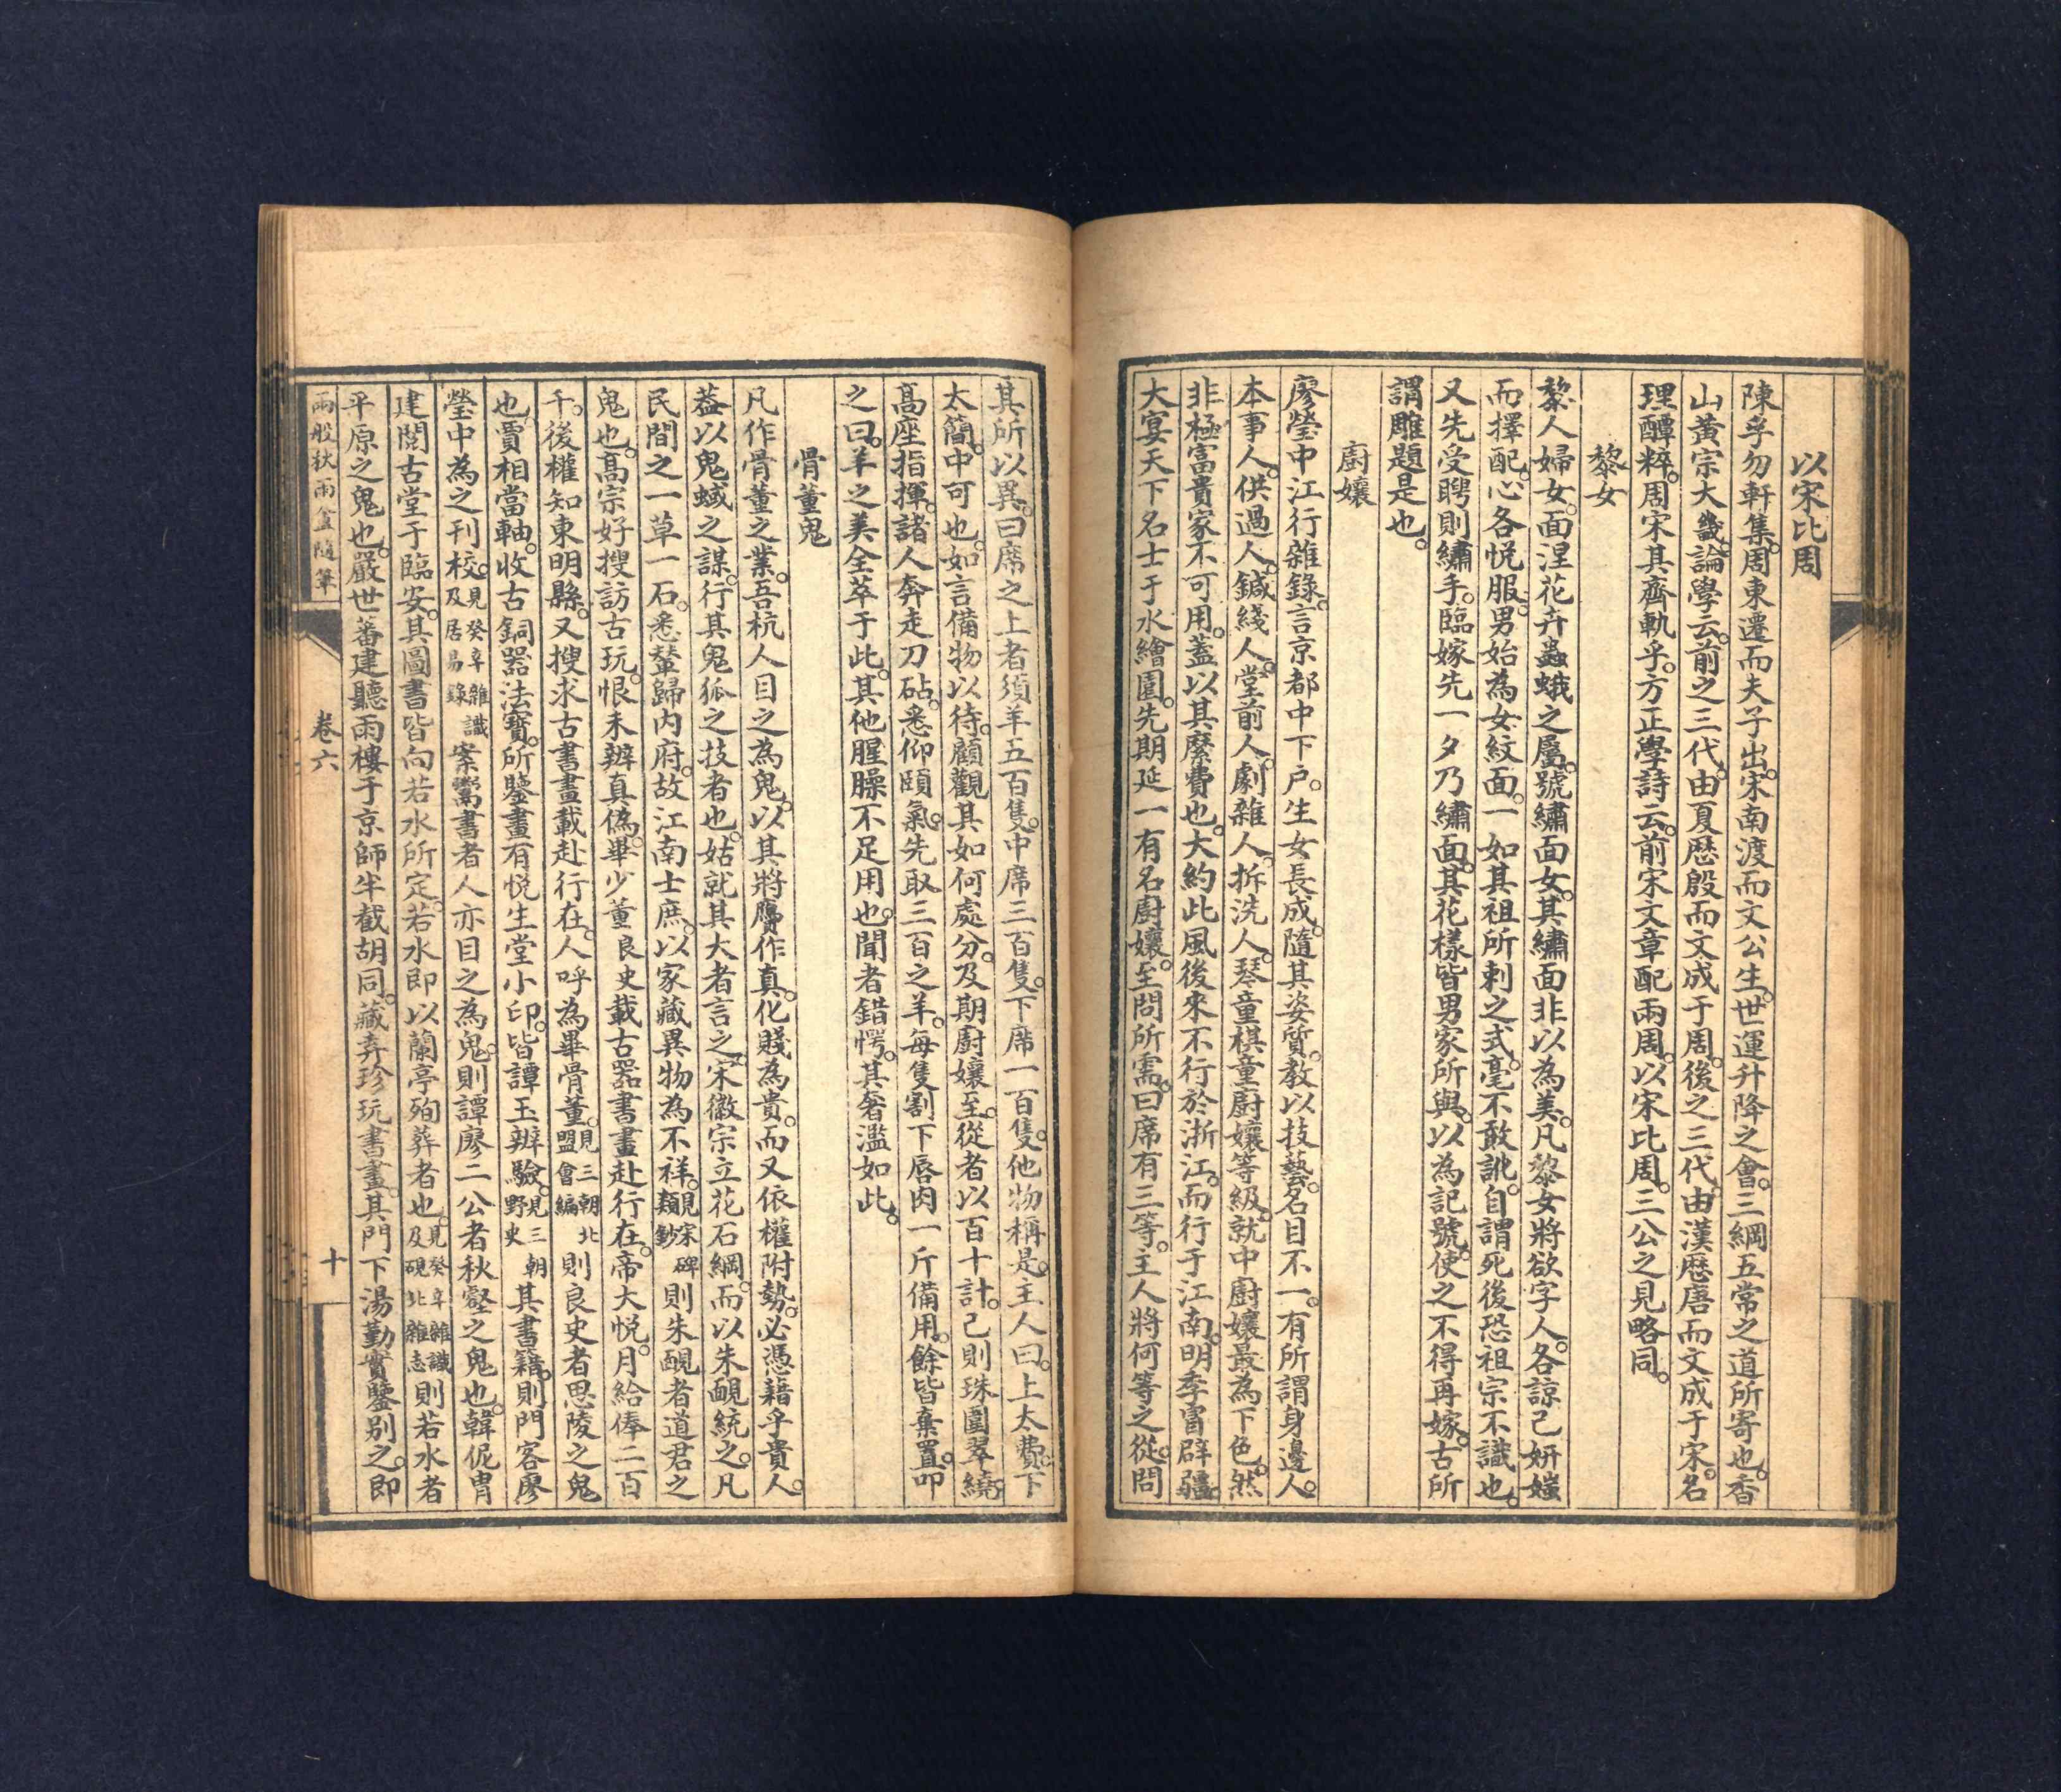 以宋比周
陳孚勿軒集。周東遷而夫子出。宋南渡而文公生。世運升降之會。三綱五常之道所寄也。香
山黃宗大畿論學云。前之三代。由夏厯殷而文成于周。後之三代。由漢厯唐而文成于宋。名
理醰粹。周宋其齊軌乎。方正學詩云。前宋文章配兩周。以宋比周。三公之見略同。
黎女
黎人婦女。面湼花卉蟲蛾之屬。號繡面女。其繡面非以為美。凡黎女將欲字人。各諒己妍媸
而擇配。心各悦服。男始為女紋面。一如其祖所刺之式。毫不敢訛。自謂死後恐祖宗不識也。
又先受聘則繡手。臨嫁先一夕乃繡面。其花樣皆男家所與。以為記號。使之不得再嫁。古所
謂雕題是也。
廚孃
廖瑩中江行雜錄。言京都中下户。生女長成。隨其姿質。教以技藝。名目不一。有所謂身邊人。
本事人。供過人。鍼綫人。堂前人。劇雜人。拆洗人。琴童棋童廚孃等級。就中廚孃最為下色。然
非極富貴家不可用。蓋以其縻費也。大約此風後來不行於浙江。而行于江南。明季冒辟疆。
大宴天下名士于水繪園。先期延一有名廚孃。至問所需。曰席有三等。主人將何等之從。問
其所以異。曰席之上者須羊五百隻。中席三百隻。下席一百隻。他物稱是。主人曰。上太費。下
太簡。中可也。如言備物以待。顧觀其如何處分。及期。廚孃至。從者以百十計。己則珠圍翠繞。
高座指揮。諸人奔走刀砧。悉仰頤氣。先取三百之羊。每隻割下唇肉一斤備用。餘皆棄置。叩
之曰。羊之美全萃于此。其他腥臊不足用也。聞者錯愕。其奢濫如此。
骨董鬼
凡作骨董之業。吾杭人目之為鬼。以其將贋作真。化賤為貴。而又依權附勢。必憑藉乎貴人。
葢以鬼蜮之謀。行其鬼狐之技者也。姑就其大者言之。宋徽宗立花石綱。而以朱勔統之。凡
民間之一草一石。悉輦歸内府。故江南士庶。以家藏異物為不祥。見宋碑類鈔則朱勔者道君之
鬼也。高宗好搜訪古玩。恨未辨真偽。畢少董良史載古器書畫赴行在。帝大悦。月給俸二百
千。後權知東明縣。又搜求古書畫載赴行在。人呼為畢骨董。見三朝北盟會編則良史者思陵之鬼
也。賈相當軸。收古銅器法寶。所鑒畫有悦生堂小印。皆譚玉辨驗。見三朝野史其書籍。則門客廖
瑩中為之刊校。見癸辛雜識及居易錄案鬻書者人亦目之為鬼。則譚廖二公者秋壑之鬼也。韓侂胄
建閱古堂于臨安。其圖書皆向若水所定。若水即以蘭亭殉葬者也。見癸辛雜識及硯北雜志則若水者
平原之鬼也。嚴世蕃建聽雨樓于京師半截胡同。藏弆珍玩書畫。其門下湯勤實鑒别之。即
兩般秋雨盦隨筆
卷六
十